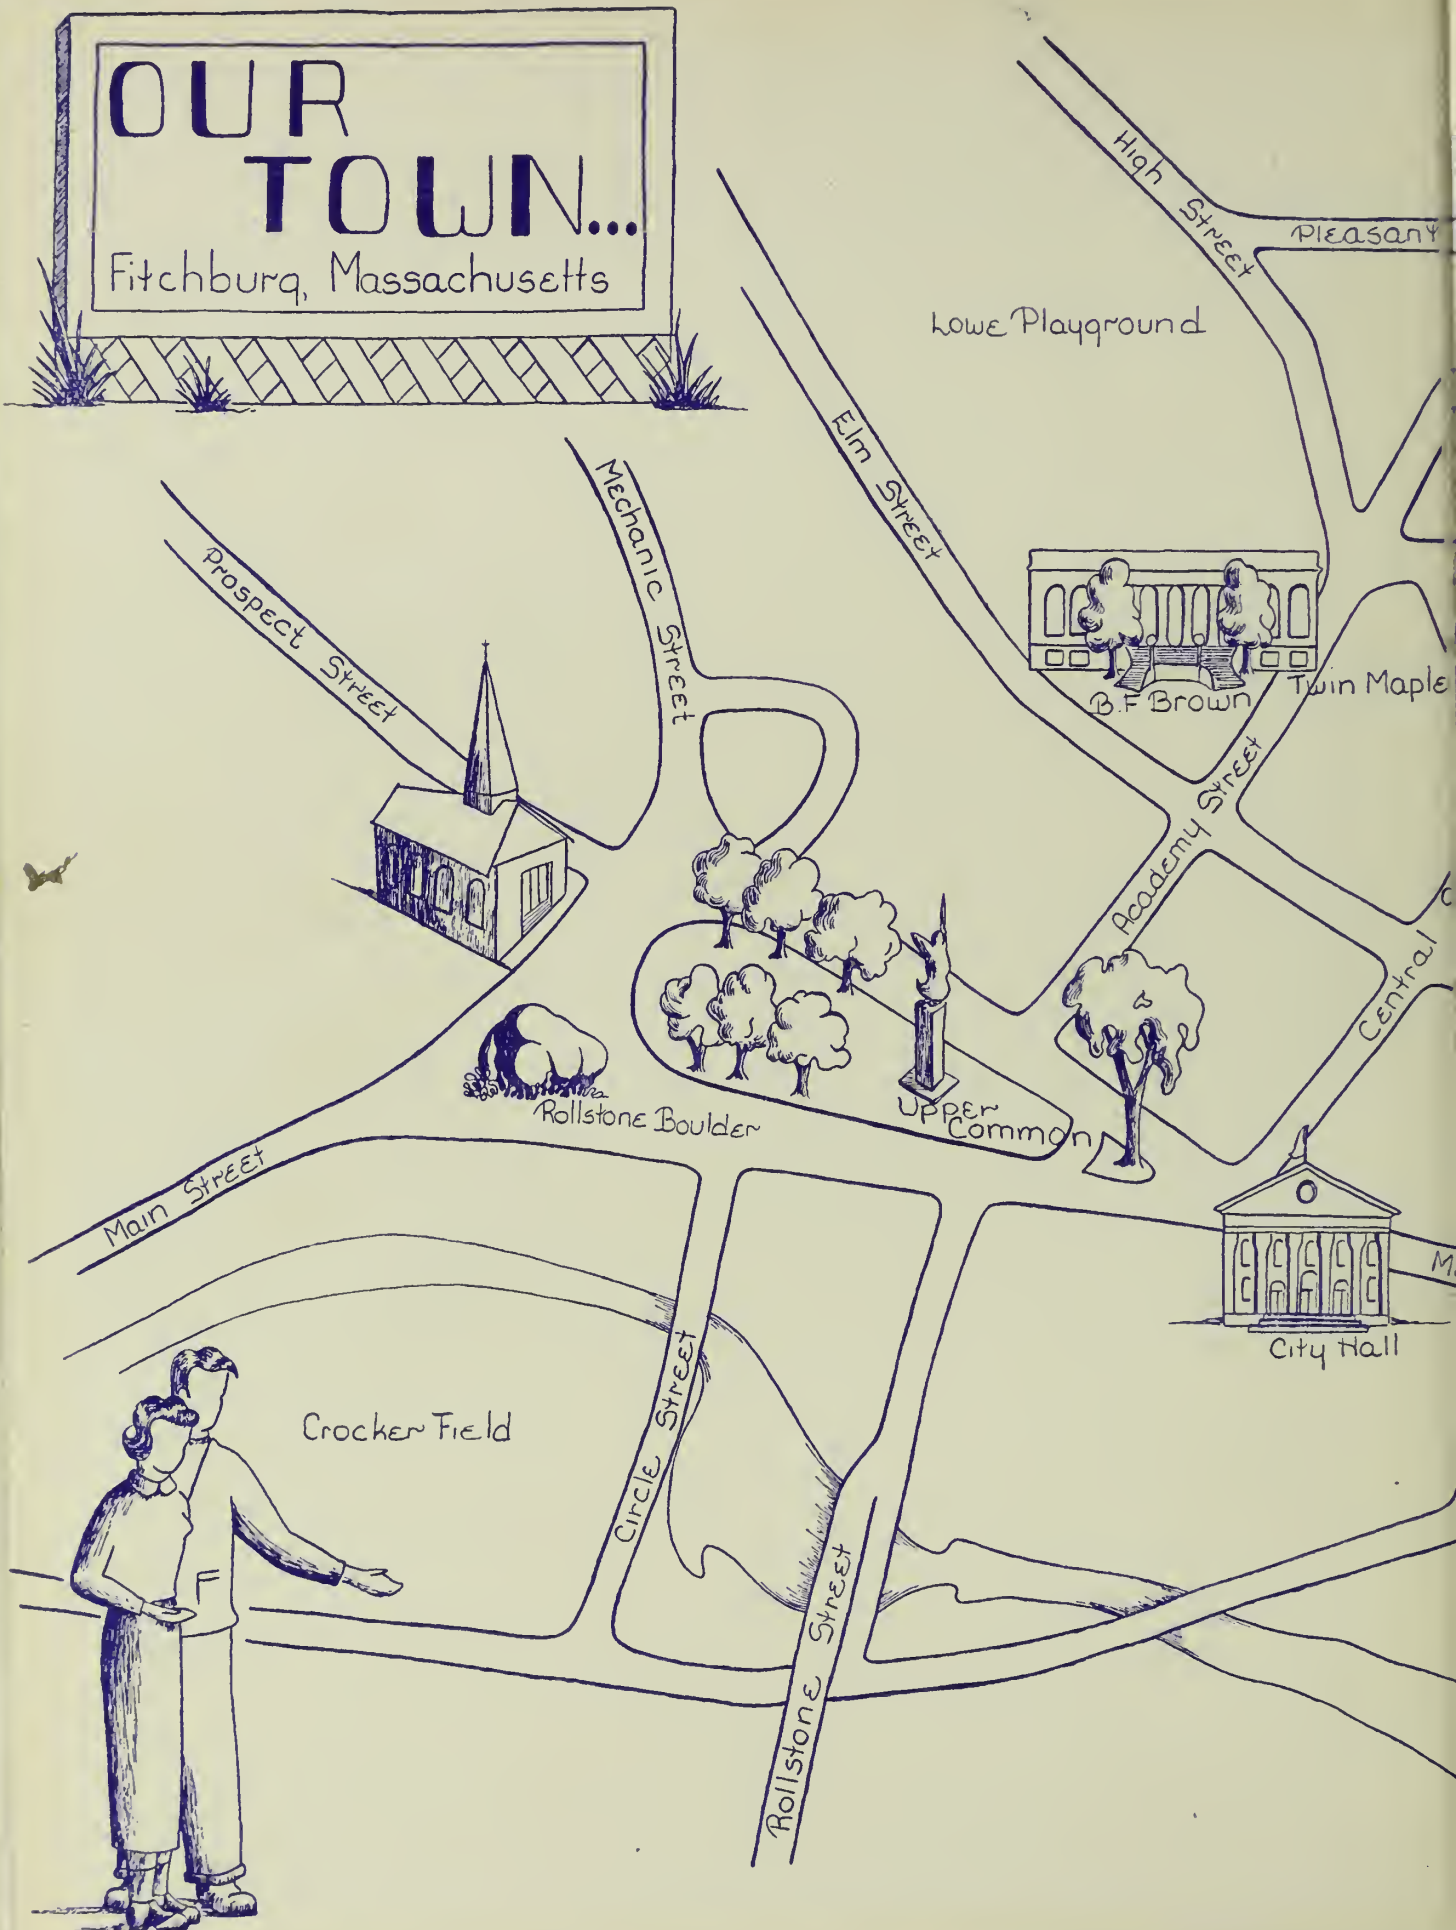 OUR
TOWN...
Fitchburg, Massachusetts
High Street
Pleasant
Lowe Playground
Elm Street
Mechanic Street
Prospect Street
B.F Brown
Twin Maple
Academy Street
Central
Rollstone Boulder
Upper
Common
Main Street
City Hall
Crocker Field
Circle Street
Rollstone Street
F